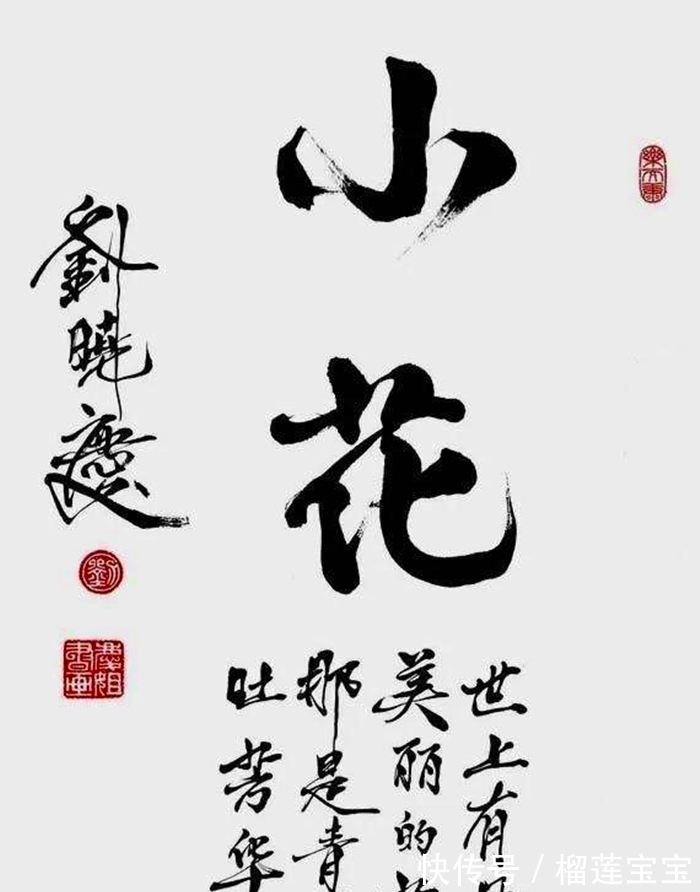 小花
世上有
美丽的
那是青
吐芳华
劉曉慶
劉
慶姐書畫
快传号 / 榴莲宝宝